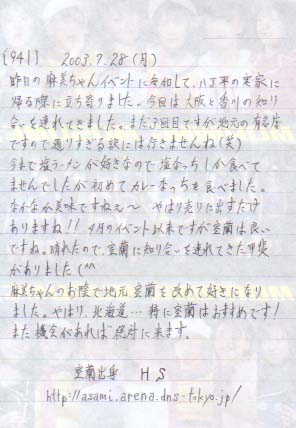 〔941〕 2003.7.28(月)
昨日の麻美ちゃんイベントに参加して、八丁平の実家に
帰る際に立ち寄りました。今回は大阪と香川の知り
合いを連れてきました。まだ3回目ですが地元の有名店
ですので通りすぎる訳には行きませんね(笑)
今まで塩ラーメンが好きなので塩なっちしか食べて
ませんでしたが初めてカレーなっちを食べました。
なかなか美味ですねぇ〜 やはり売りに出すだけ
ありますね!! 4月のイベント以来ですが室蘭は良い
ですね。晴れたので、室蘭に知り合いを連れてきた甲斐
がありました(^^
麻美ちゃんのお陰で地元室蘭を改めて好きになり
ました。やはり、北海道…特に室蘭はおすすめです!
また機会があれば絶対に来ます。
室蘭出身 H S
http://asami.arena.dns-tokyo.jp/